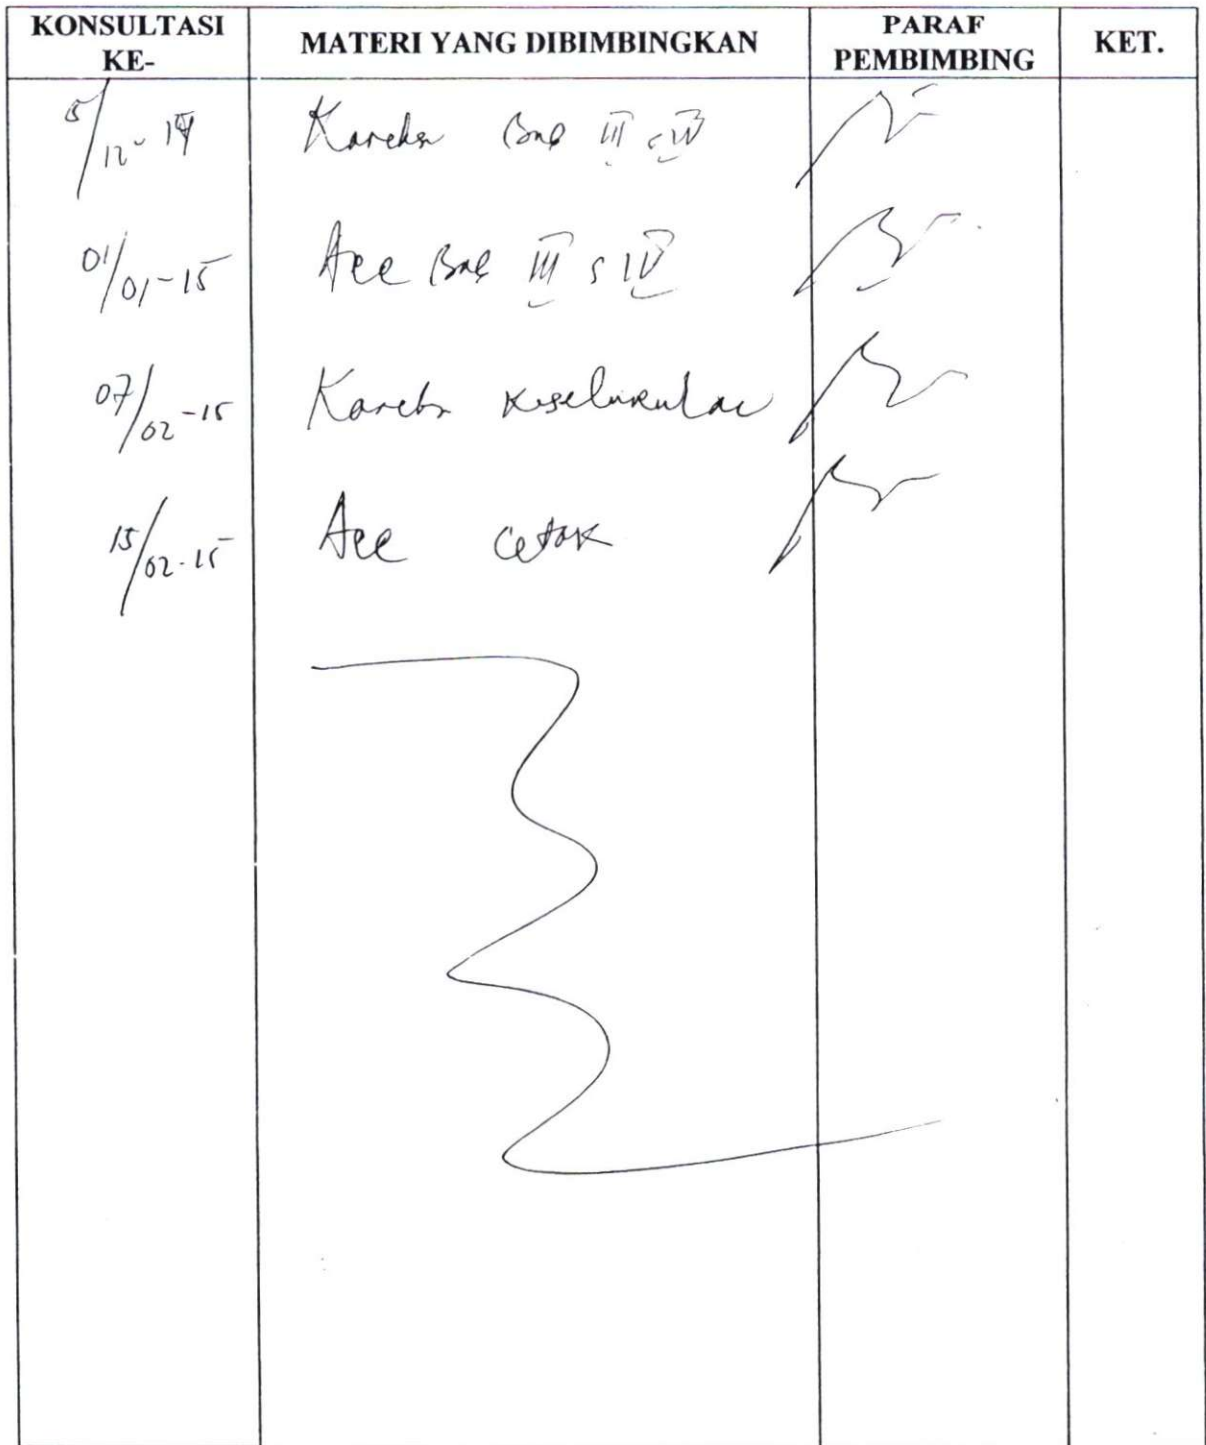 KONSULTASI KE-
MATERI YANG DIBIMBINGKAN
PARAF PEMBIMBING
KET.
5/12-14 Koreksi Bab III & IV
01/01-15 Acc Bab III & IV
07/02-15 Koreksi Keseluruhan
15/02-15 Acc Cetak